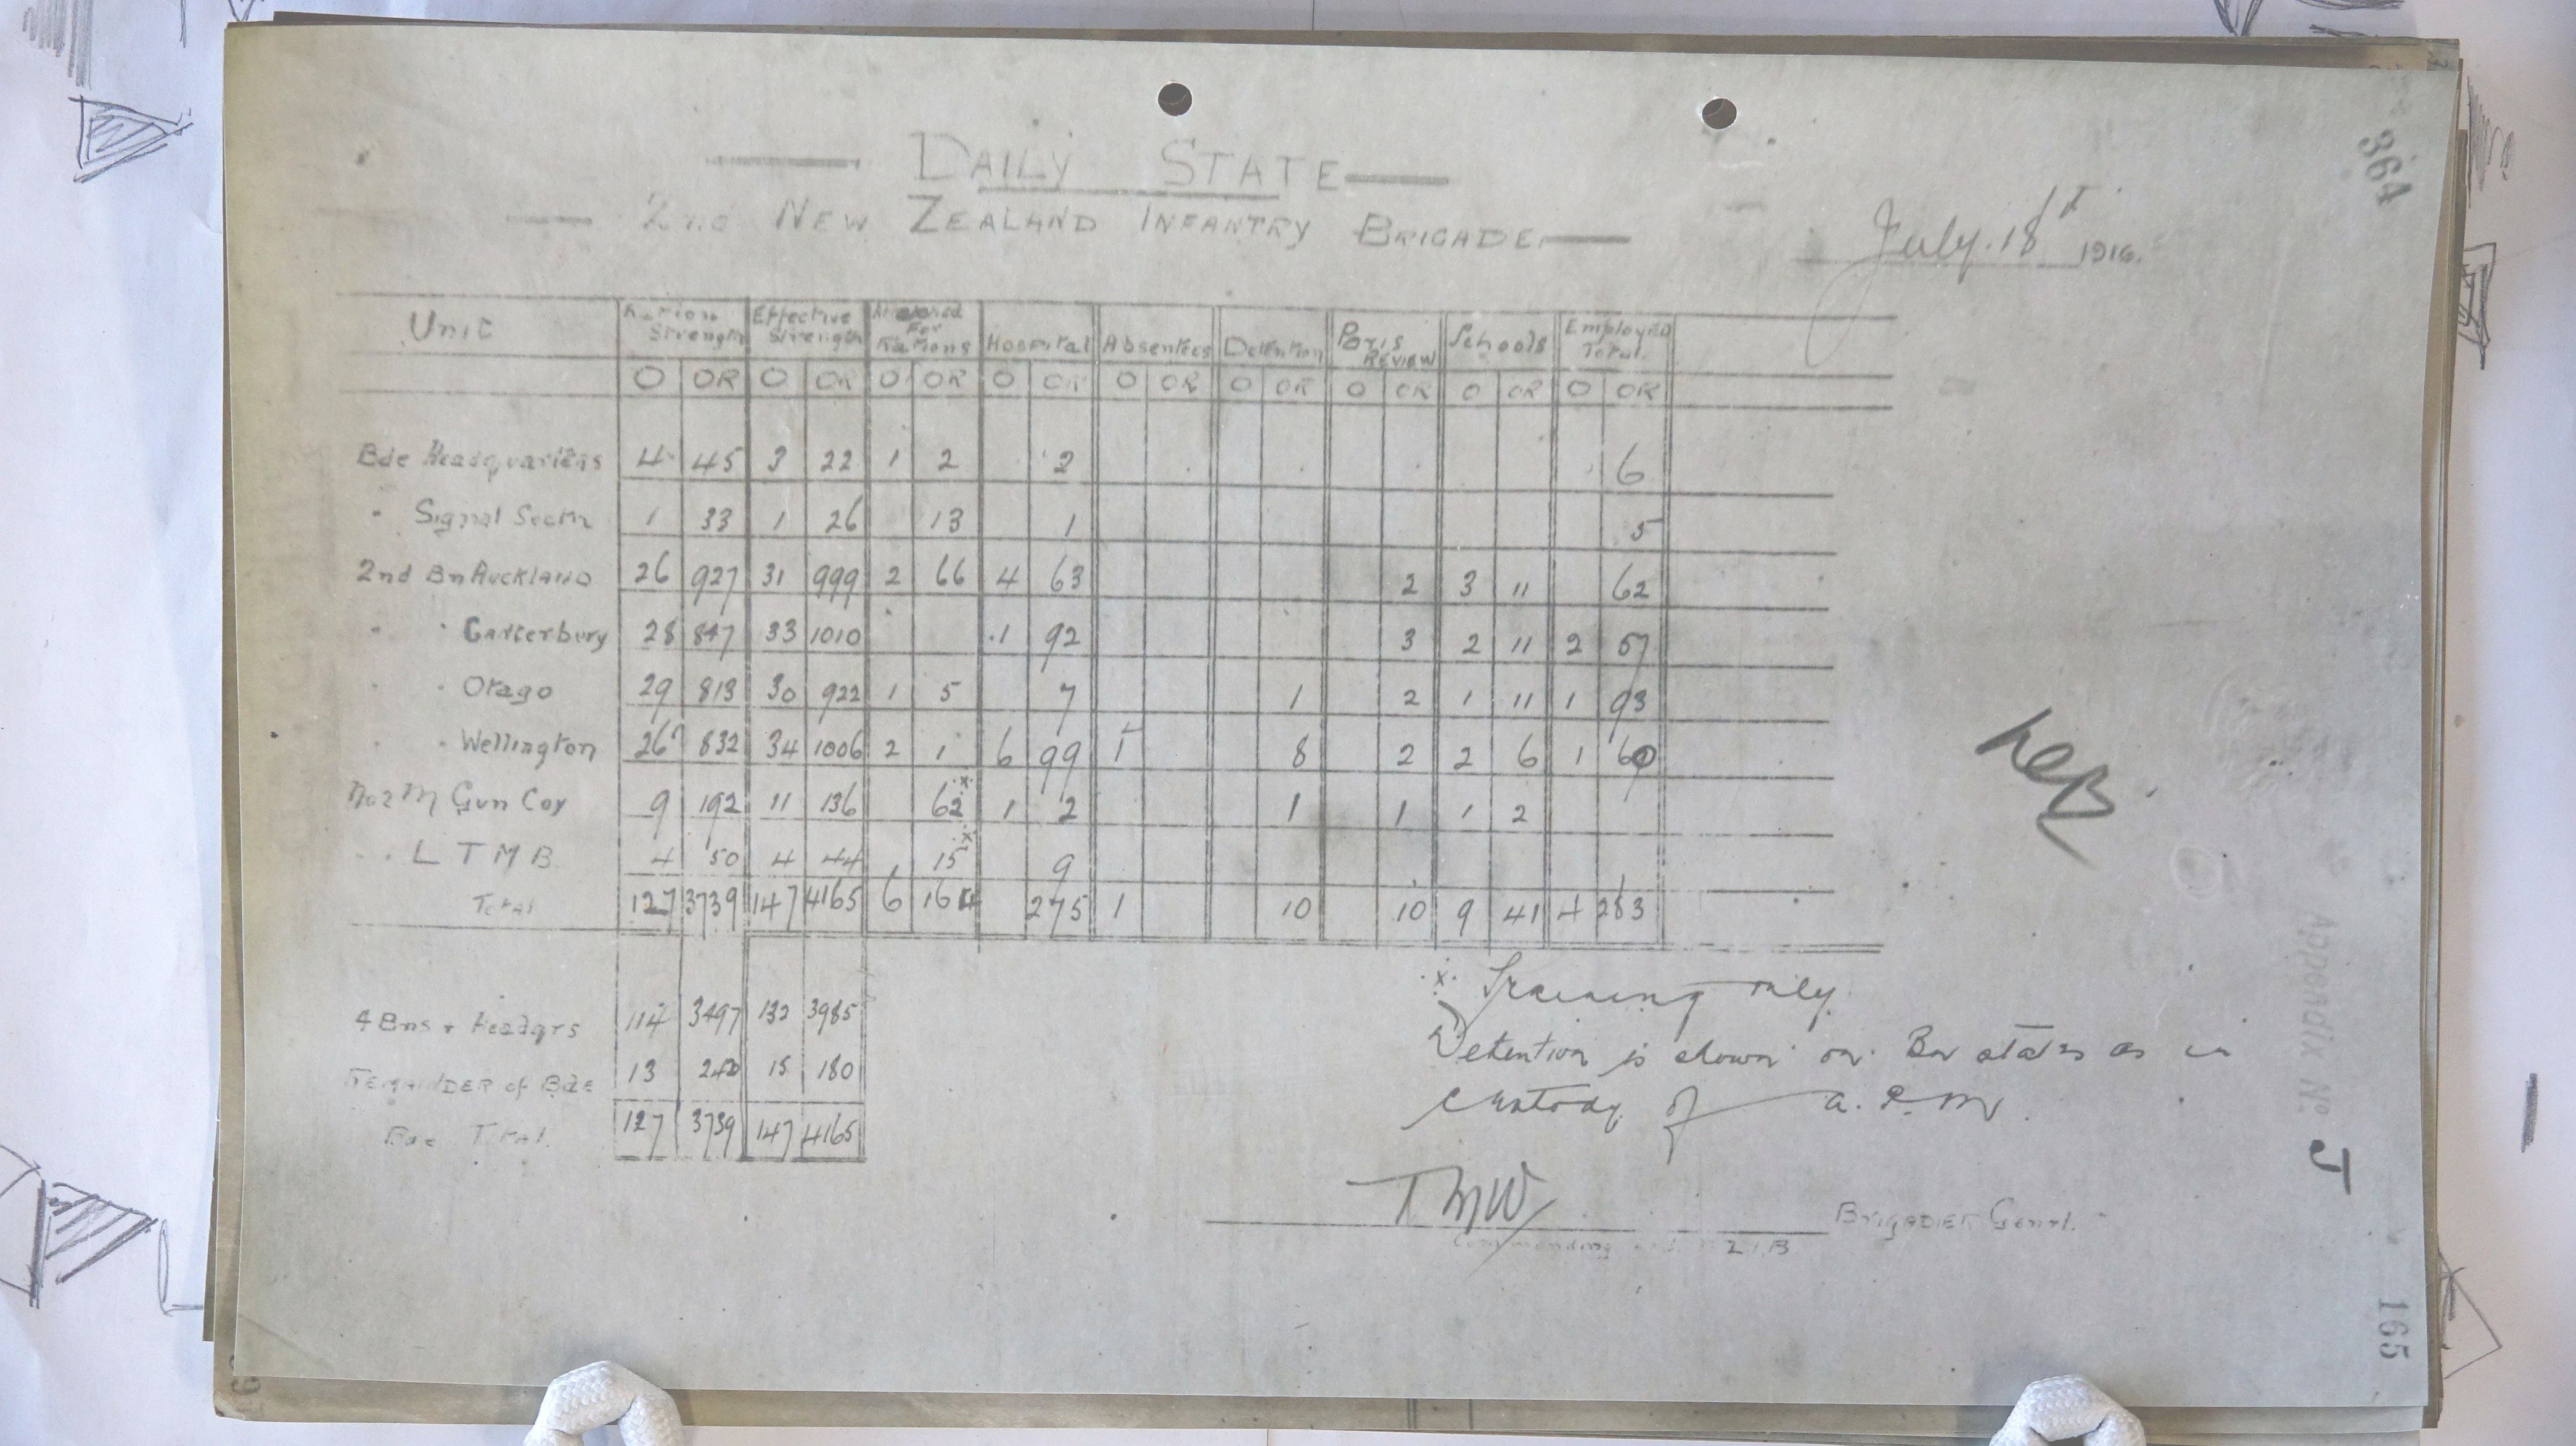 364
DAILY STATE
2nd NEW ZEALAND INFANTRY BRIGADE
July. 18th 1916.
Unit Ration Strength Effective Strength Attached For Rations Hospital Absentees Detention Paris REVIEW Schools Employed Total
O OR O OR O OR O OR O OR O OR O OR O OR O OR
Bde Headquarters 4 45 3 22 1 2 2 6
" Signal Sectn 1 33 1 26 13 1 5
2nd Bn AUCKLAND 26 927 31 999 2 66 4 63 2 3 11 62
" " Canterbury 28 847 33 1010 1 92 3 2 11 2 57
" " Otago 29 813 30 922 1 5 7 1 2 1 11 1 93
" " Wellington 26 832 34 1006 2 1 6 99 1 8 2 2 6 1 60
No 2 M Gun Coy 9 192 11 136 62 x 1 2 1 1 1 2
" " L T M B. 4 50 4 44 15 x 9
Total 127 3739 147 4165 6 164 275 1 10 10 9 41 4 283
4 Bns + Headqrs 114 3497 132 3985
REMAINDER of Bde 13 242 15 180
Bde Total 127 3739 147 4165
x Training only
Detention is shown on Bn states as in
custody of A.P.M.
TMW
BRIGADIER Genrl.
Commanding
Appendix No. J
165